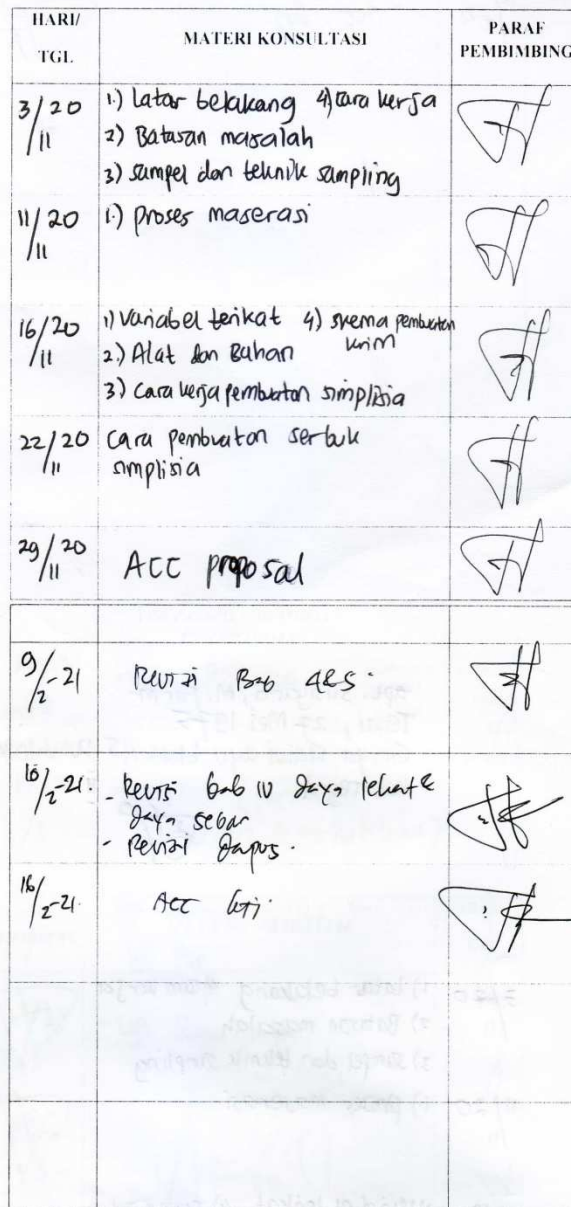 HARI/
TGL
MATERI KONSULTASI
PARAF
PEMBIMBING
3/20
11
1.) Latar belakang 4) cara kerja
2) Batasan masalah
3) sampel dan teknik sampling
11/20
11
1.) proses maserasi
16/20
11
1) Variabel terikat 4) skema pembuatan
krim
2.) Alat dan Bahan
3) cara kerja pembuatan simplisia
22/20
11
cara pembuatan serbuk
simplisia
29/20
11
ACC proposal
9/2-21
Revisi Bab 4&5.
10/2-21.
- Revisi bab IV daya lekat &
daya sebar
- Revisi dapus.
16/2-21.
ACC KTI.